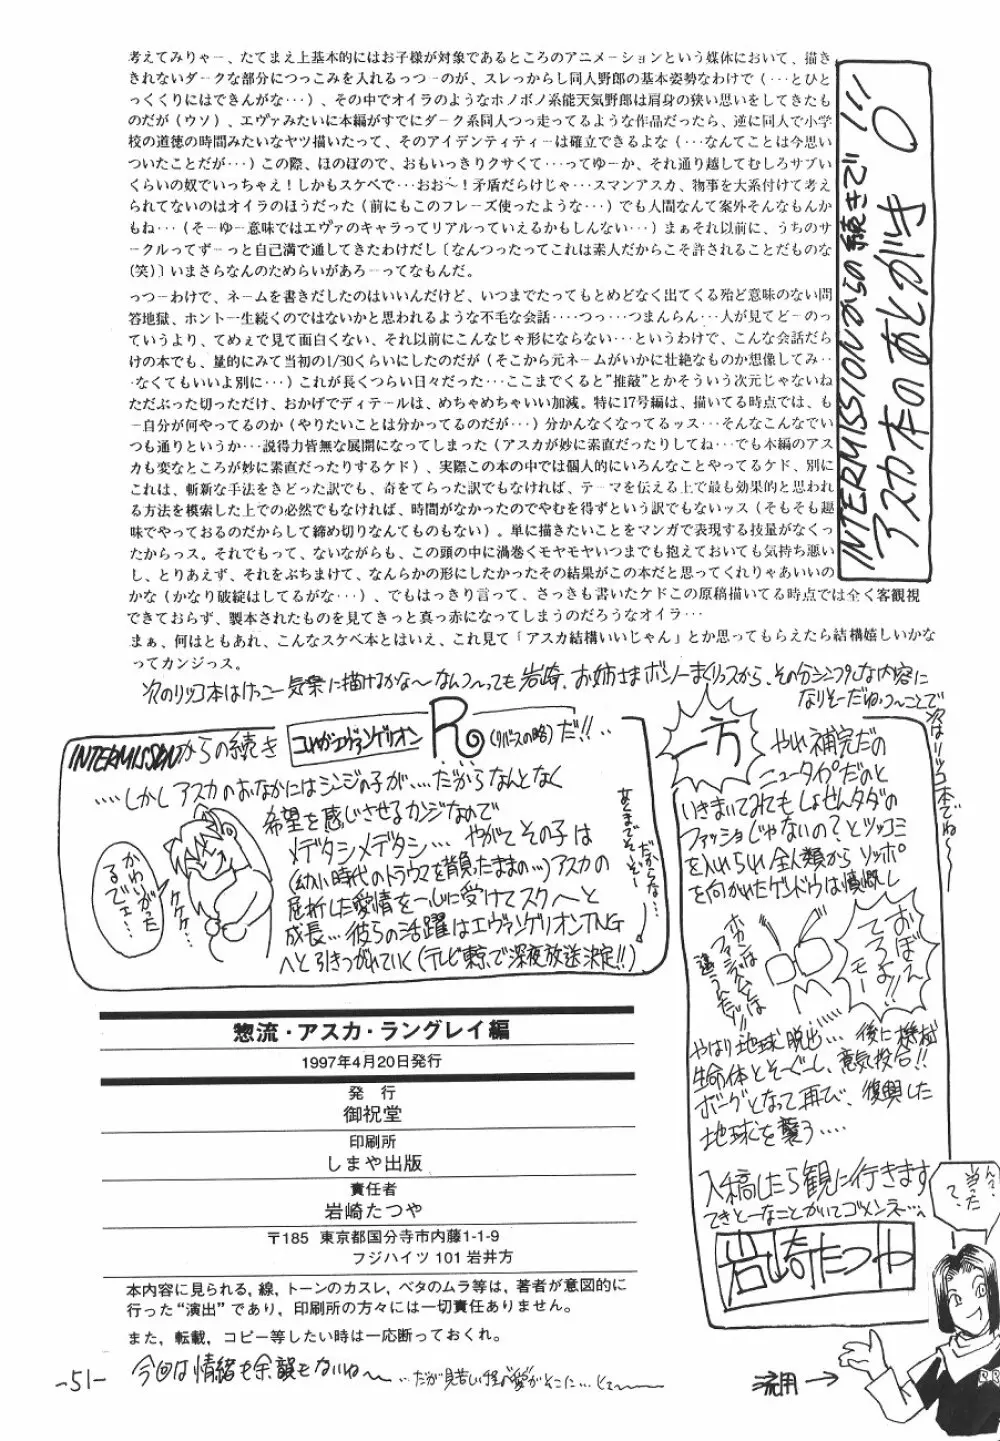 INTERMISSIONからの続きで!!!
アスカ本のあとがき
考えてみりゃー、たてまえ上基本的にはお子様が対象であるところのアニメーションという媒体において、描き
きれないダークな部分につっこみを入れるっつーのが、スレっからし同人野郎の基本姿勢なわけで（…とひと
っくくりにはできんがな…）、その中でオイラのようなホノボノ系能天気野郎は肩身の狭い思いをしてきたも
のだが（ウソ）、エヴァみたいに本編がすでにダーク系同人つっ走ってるような作品だったら、逆に同人で小学
校の道徳の時間みたいなヤツ描いたって、そのアイデンティティーは確立できるよな（…なんてことは今思い
ついたことだが…）この際、ほのぼので、おもいっきりクサくて…ってゆーか、それ通り越してむしろサブい
くらいの奴でいっちゃえ！しかもスケベで…おお〜！矛盾だらけじゃ…スマンアスカ、物事を大系付けて考え
られてないのはオイラのほうだった（前にもこのフレーズ使ったような…）でも人間なんて案外そんなもんか
もね…（そーゆー意味ではエヴァのキャラってリアルっていえるかもしんない…）まぁそれ以前に、うちのサ
ークルってずーっと自己満で通してきたわけだし〔なんつったってこれは素人だからこそ許されることだものな
（笑）〕いまさらなんのためらいがあろーってなもんだ。
っつーわけで、ネームを書きだしたのはいいんだけど、いつまでたってもとめどなく出てくる殆ど意味のない問
答地獄、ホント一生続くのではないかと思われるような不毛な会話‥‥つっ…つまんらん…人が見てどーのっ
ていうより、てめぇで見て面白くない、それ以前にこんなじゃ形にならない…というわけで、こんな会話だら
けの本でも、量的にみて当初の1/30くらいにしたのだが（そこから元ネームがいかに壮絶なものか想像してみ‥
なくてもいいよ別に…）これが長くつらい日々だった…ここまでくると"推敲"とかそういう次元じゃないね
ただぶった切っただけ、おかげでディテールは、めちゃめちゃいい加減。特に17号編は、描いてる時点では、も
ー自分が何やってるのか（やりたいことは分かってるのだが…）分かんなくなってるッス…そんなこんなでい
つも通りというか…説得力皆無な展開になってしまった（アスカが妙に素直だったりしてね…でも本編のアス
カも変なところが妙に素直だったりするケド）、実際この本の中では個人的にいろんなことやってるケド、別に
これは、斬新な手法をきどった訳でも、奇をてらった訳でもなければ、テーマを伝える上で最も効果的と思われ
る方法を模索した上での必然でもなければ、時間がなかったのでやむを得ずという訳でもないッス（そもそも趣
味でやっておるのだからして締め切りなんてものもない）。単に描きたいことをマンガで表現する技量がなくっ
たからっス。それでもって、ないながらも、この頭の中に渦巻くモヤモヤいつまでも抱えておいても気持ち悪い
し、とりあえず、それをぶちまけて、なんらかの形にしたかったその結果がこの本だと思ってくれりゃあいいの
かな（かなり破綻はしてるがな…）、でもはっきり言って、さっきも書いたケドこの原稿描いてる時点では全く客観視
できておらず、製本されたものを見てきっと真っ赤になってしまうのだろうなオイラ…
まぁ、何はともあれ、こんなスケベ本とはいえ、これ見て「アスカ結構いいじゃん」とか思ってもらえたら結構嬉しいかな
ってカンジっス。
次のリツコ本はけっこー気楽に描けるかな〜なんつ〜っても岩崎、お姉さまボンノーまくりっスから、その分シンプルな内容に
なりそーだね・つ〜ことで
次はリツコ本でね〜
INTERMISSIONからの続き
これがエヴァンゲリオンR(リバースの略)だ!!‥
‥‥しかしアスカのおなかにはシンジの子が‥‥だからなんとなく
希望を感じさせるカンジなので
メデタシメデタシ… やがてその子は
(幼い時代のトラウマを背負ったままの…)アスカの
屈折した愛情を一心に受けてスクスクと
成長…彼らの活躍はエヴァンゲリオンTNG
へと引きつがれていく(テレビ東京で深夜放送決定!!)
かわいがった
るでェ…
ケケケ…
だからな…
あくまでそーぞー
一方
やれ補完だの
ニュータイプだのと
いきまいてみてもしょせんタダの
ファッショじゃないの?とツッコミ
を入れられ全人類からソッポ
を向かれたゲンドウは憤慨し
おぼえ
てろよ!!
モー
ホカンとは
ファシズムとは
違うんだゾ!!
やはり地球脱出… 後に機械
生命体とそーぐーし、意気投合!!
ボーグとなって再び、復興した
地球を襲う‥‥
入稿したら観に行きます
てきとーなことかいてゴメンネ…
岩崎たつや
当った
て、
流用→
惣流・アスカ・ラングレイ編
1997年4月20日発行
発 行
御祝堂
印刷所
しまや出版
責任者
岩崎たつや
〒185 東京都国分寺市内藤1-1-9
フジハイツ 101 岩井方
本内容に見られる，線，トーンのカスレ，ベタのムラ等は，著者が意図的に
行った"演出"であり，印刷所の方々には一切責任ありません。
また，転載，コピー等したい時は一応断っておくれ。
今回は情緒も余韻もないね〜
-51-